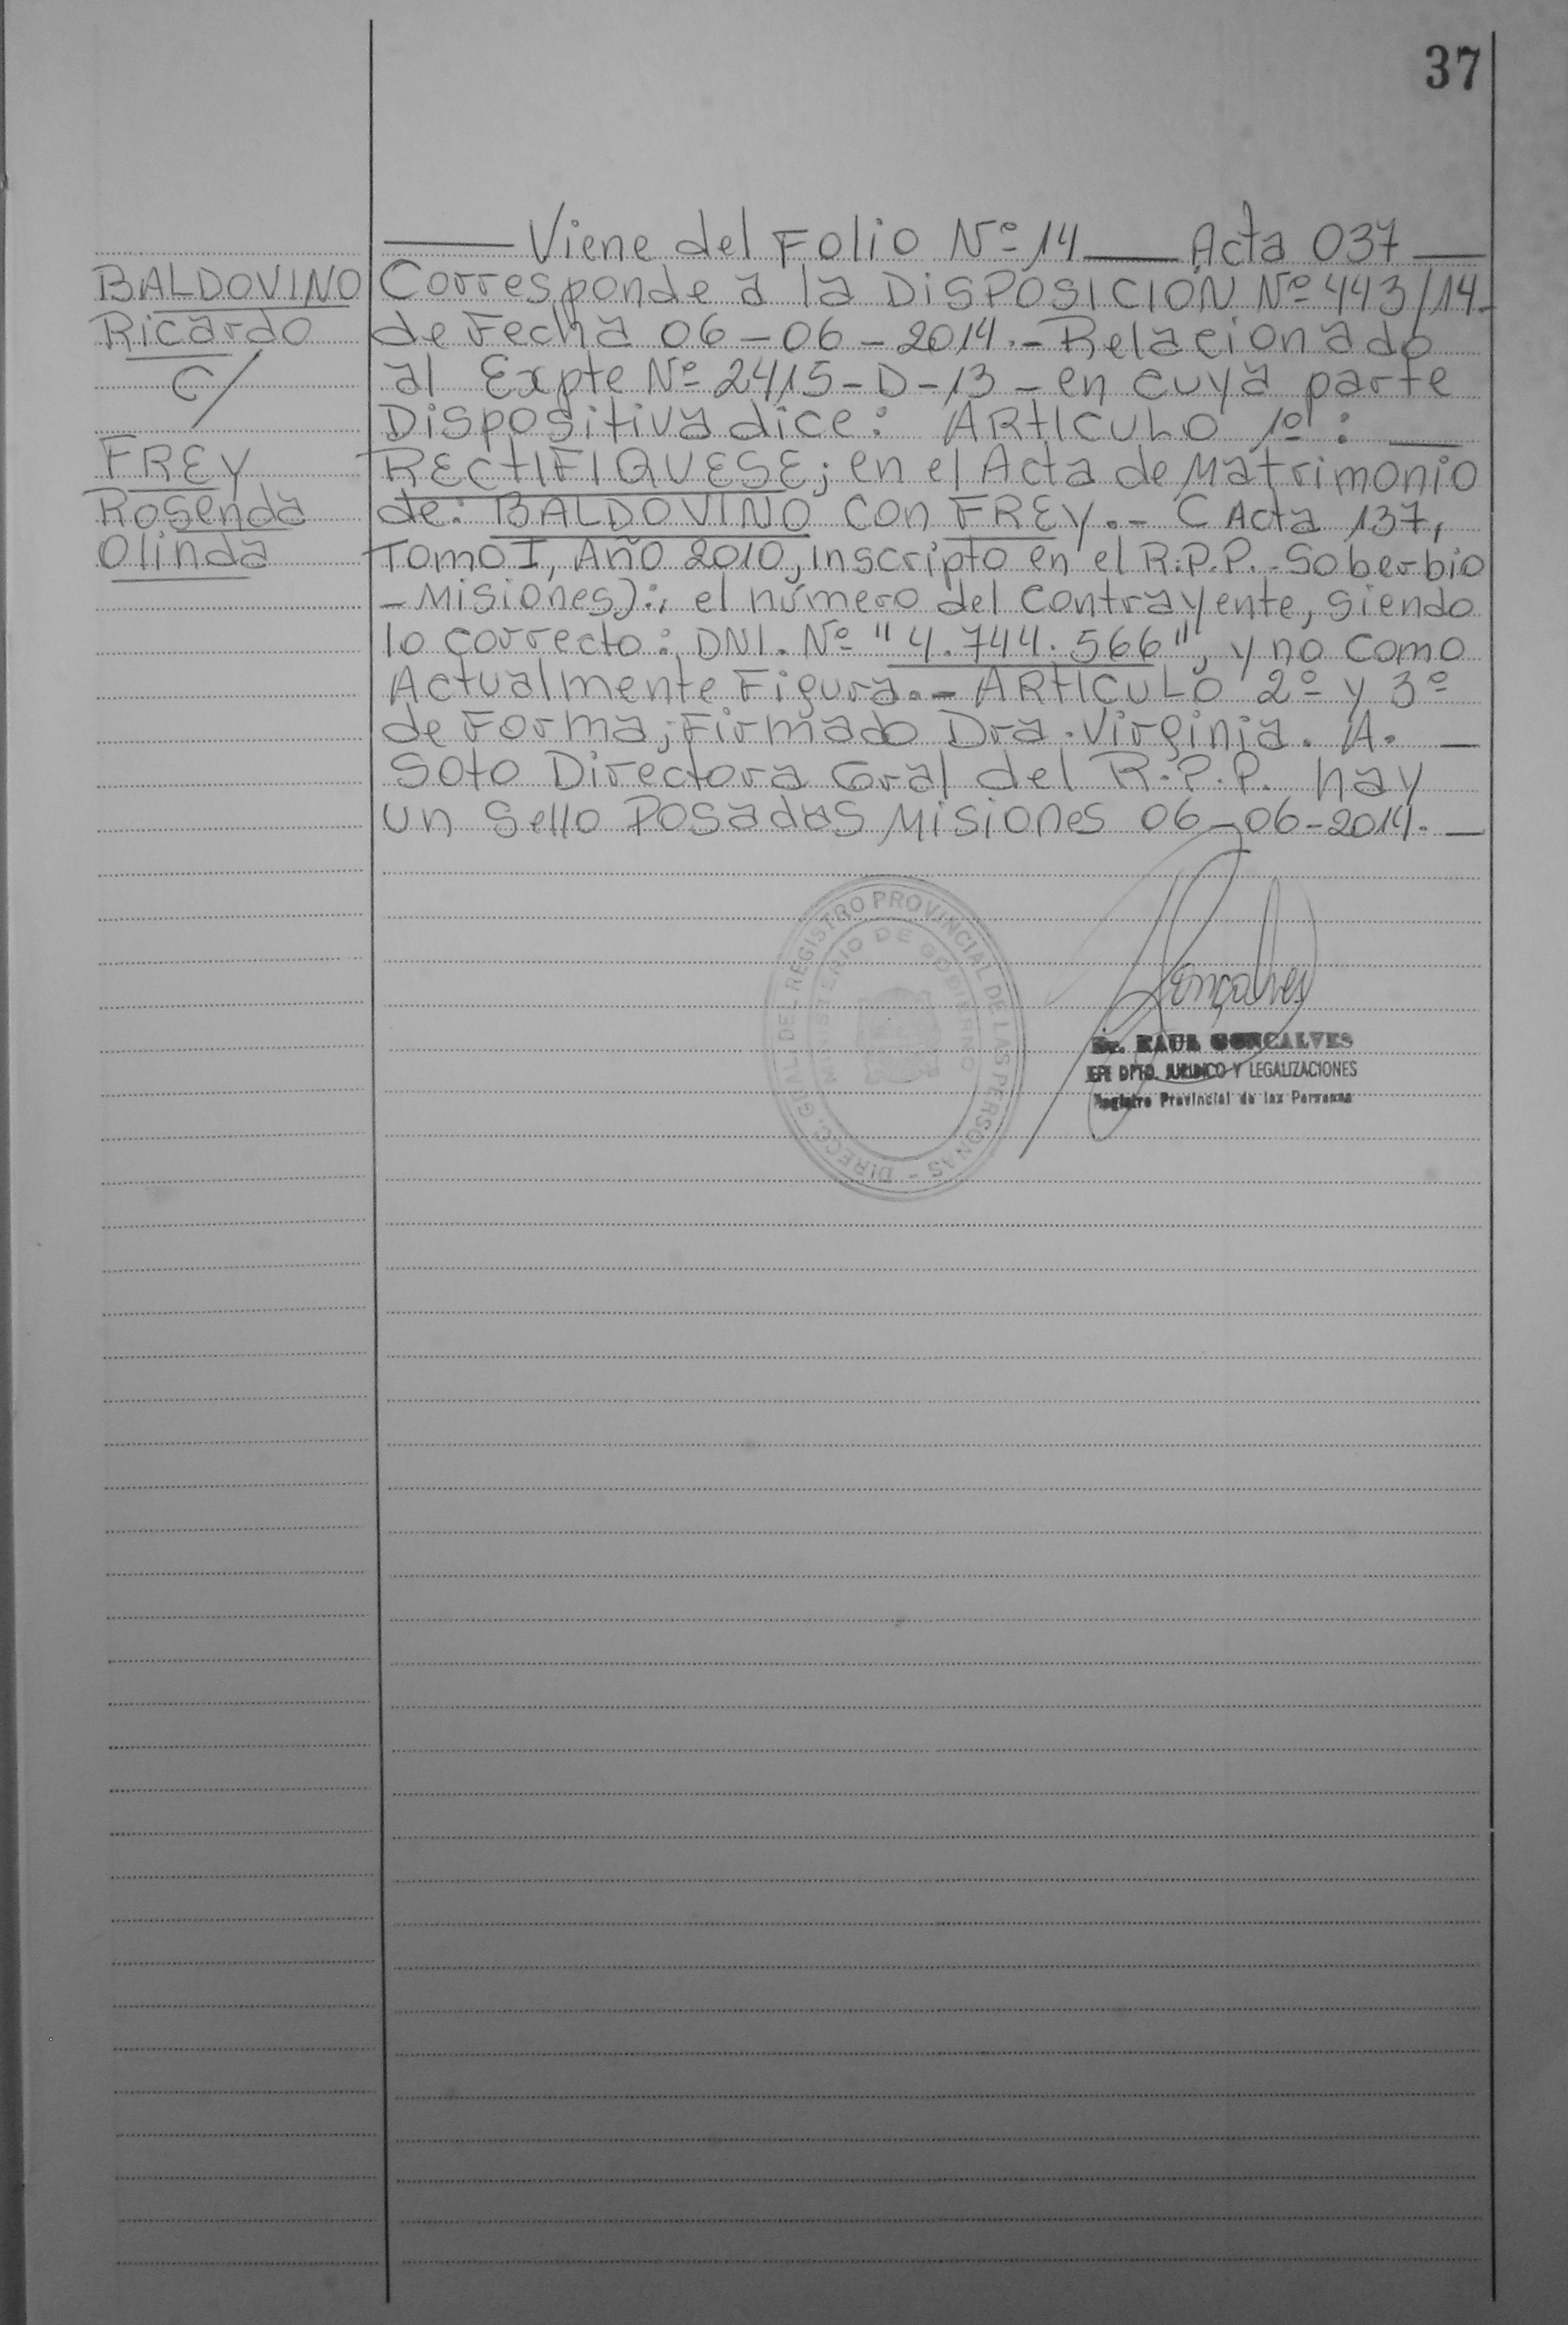 37
BALDOVINO
Ricardo
C/
FREY
Rosenda
Olinda
Viene del Folio Nº 14 — Acta 037 —
Corresponde a la DISPOSICIÓN Nº 443/14-
de Fecha 06-06-2014.- Relacionado
al Expte Nº 2415-D-13 - en cuya parte
Dispositiva dice: ARTICULO 1º: —
RECTIFIQUESE; en el Acta de Matrimonio
de: BALDOVINO con FREY.- C Acta 137,
Tomo I, Año 2010, inscripto en el R.P.P.-Soberbio
-Misiones):, el número del contrayente, siendo
lo correcto: DNI. Nº "4.744.566", y no como
Actualmente Figura.- ARTICULO 2º y 3º
de Forma; Firmado Dra. Virginia. A. —
Soto Directora Gral del R.P.P. hay
un Sello Posadas Misiones 06-06-2014. —
DIRECC. GRAL. DEL REGISTRO PROVINCIAL DE LAS PERSONAS -
MINISTERIO DE GOBIERNO
Goncalves
Sr. RAUL GONCALVES
JEFE DPTO. JURIDICO Y LEGALIZACIONES
Registro Provincial de las Personas